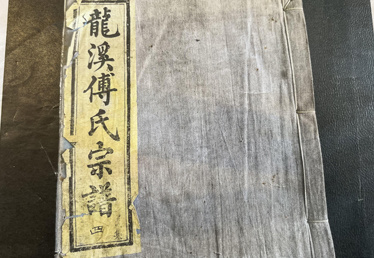 龍溪傅氏宗譜
四